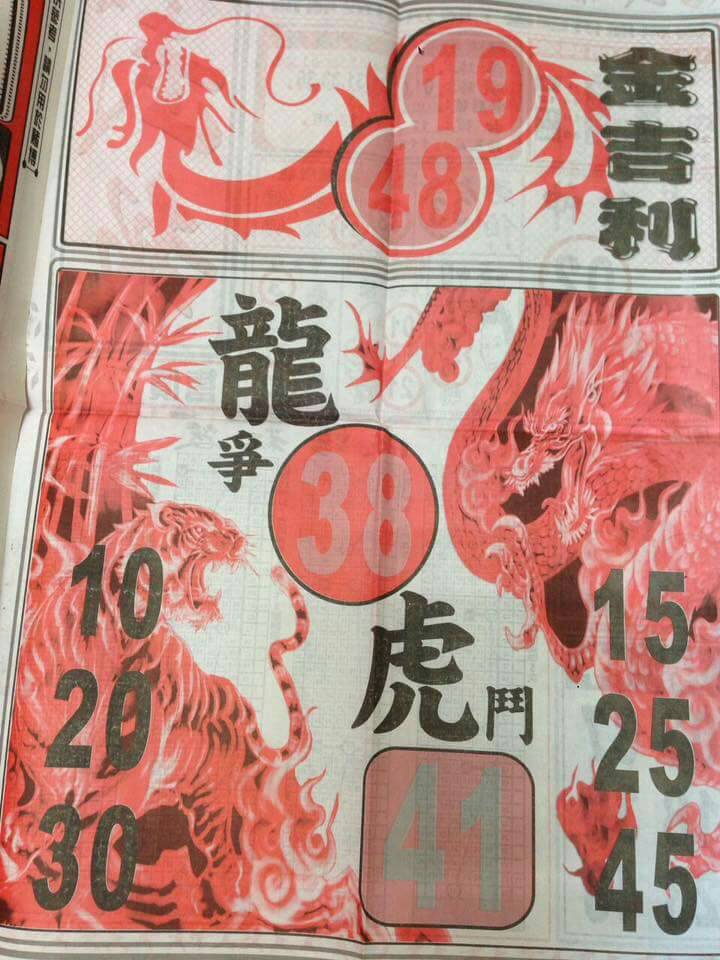 19
48
金吉利
龍
爭
38
虎
鬥
41
10
20
30
15
25
45